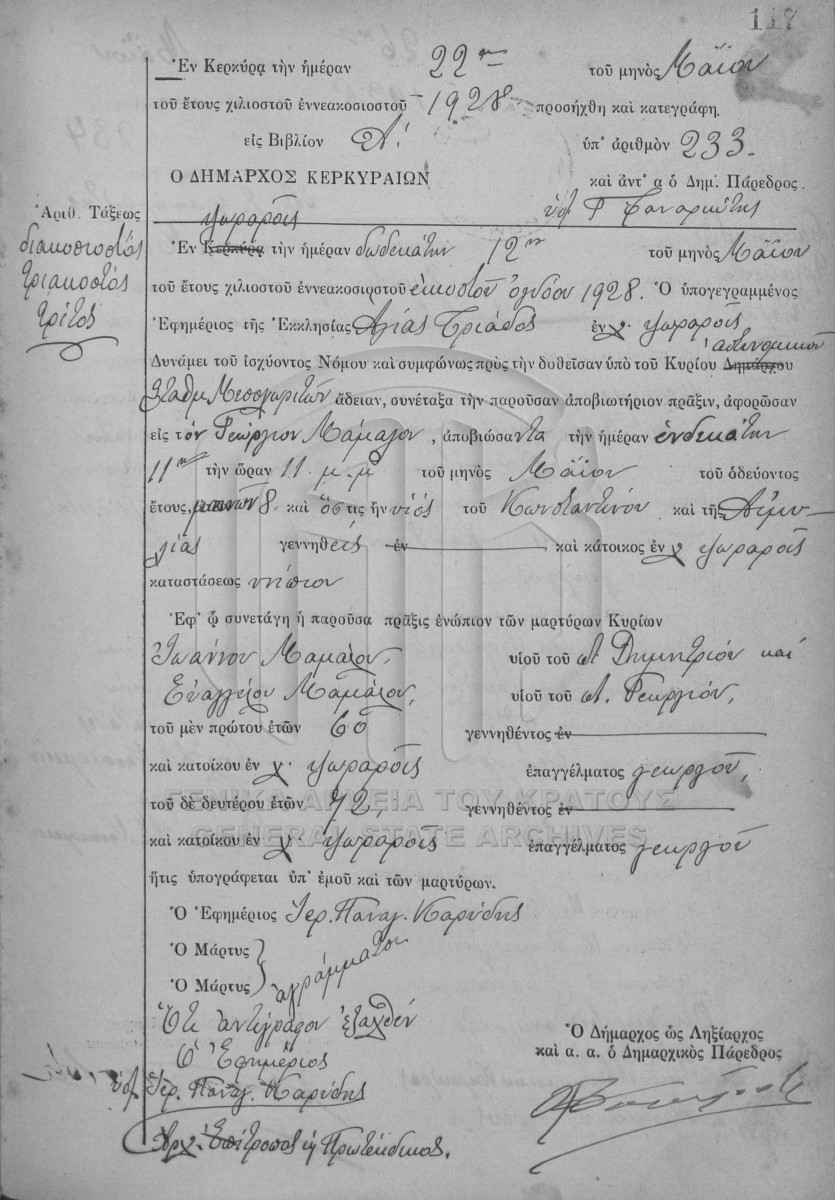 117
Ἐν Κερκύρᾳ τὴν ἡμέραν 22αν τοῦ μηνὸς Μαΐου
τοῦ ἔτους χιλιοστοῦ ἐννεακοσιοστοῦ 1928 προσήχθη καὶ κατεγράφη.
εἰς Βιβλίον Α! ὑπ' ἀριθμὸν 233.
Ο ΔΗΜΑΡΧΟΣ ΚΕΡΚΥΡΑΙΩΝ καὶ ἀντ' α ὁ Δημ. Πάρεδρος.
Ἀριθ. Τάξεως
διακοσιοστός
τριακοστός
τρίτος
Ψωραροῖς
Ἐν Κερκύρᾳ τὴν ἡμέραν δωδεκάτην 12ην τοῦ μηνὸς Μαΐου
τοῦ ἔτους χιλιοστοῦ ἐννεακοσιοστοῦ εἰκοστοῦ ὀγδόου 1928. Ὁ ὑπογεγραμμένος
Ἐφημέριος τῆς Ἐκκλησίας Ἁγίας Τριάδος ἐν χ. Ψωραροῖς
ἀστυνομικοῦ
Δυνάμει τοῦ ἰσχύοντος Νόμου καὶ συμφώνως πρὸς τὴν δοθεῖσαν ὑπὸ τοῦ Κυρίου Δημάρχου
Σταθμ. Μεσογγριτῶν ἄδειαν, συνέταξα τὴν παροῦσαν ἀποβιωτήριον πρᾶξιν, ἀφορῶσαν
εἰς τὸν Γεώργιον Μάμαλον, ἀποβιώσαντα τὴν ἡμέραν ἑνδεκάτην
11ην τὴν ὥραν 11 μ.μ. τοῦ μηνὸς Μαΐου τοῦ ὁδεύοντος
ἔτους, μηνῶν 8. καὶ ὅστις ἦν υἱὸς τοῦ Κωνσταντίνου καὶ τῆς Αἰμυ-
λίας γεννηθείς ἐν καὶ κάτοικος ἐν χ Ψωραροῖς
καταστάσεως νήπιον
Ἐφ' ᾧ συνετάγη ἡ παροῦσα πρᾶξις ἐνώπιον τῶν μαρτύρων Κυρίων
Ἰωάννου Μαμάλου, υἱοῦ τοῦ Δημητρίου καὶ
Εὐαγγέλου Μαμάλου, υἱοῦ τοῦ Γεωργίου,
τοῦ μὲν πρώτου ἐτῶν 60 γεννηθέντος ἐν
καὶ κατοίκου ἐν χ. Ψωραροῖς ἐπαγγέλματος γεωργοῦ,
τοῦ δὲ δευτέρου ἐτῶν 72, γεννηθέντος ἐν
ΓΕΝΙΚΑ ΑΡΧΕΙΑ ΤΟΥ ΚΡΑΤΟΥΣ
GENERAL STATE ARCHIVES
καὶ κατοίκου ἐν χ. Ψωραροῖς ἐπαγγέλματος γεωργοῦ
ἥτις ὑπογράφεται ὑπ' ἐμοῦ καὶ τῶν μαρτύρων.
Ὁ Ἐφημέριος Ἱερ. Παναγ. Καρύδης
Ὁ Μάρτυς
Ὁ Μάρτυς ἀγράμματοι
Ὅτι ἀντίγραφον ἐξαχθέν
Ὁ Ἐφημέριος
ὑπ. Ἱερ. Παναγ. Καρύδης
Ὁ Δήμαρχος ὡς Ληξίαρχος
καὶ α. α. ὁ Δημαρχικὸς Πάρεδρος